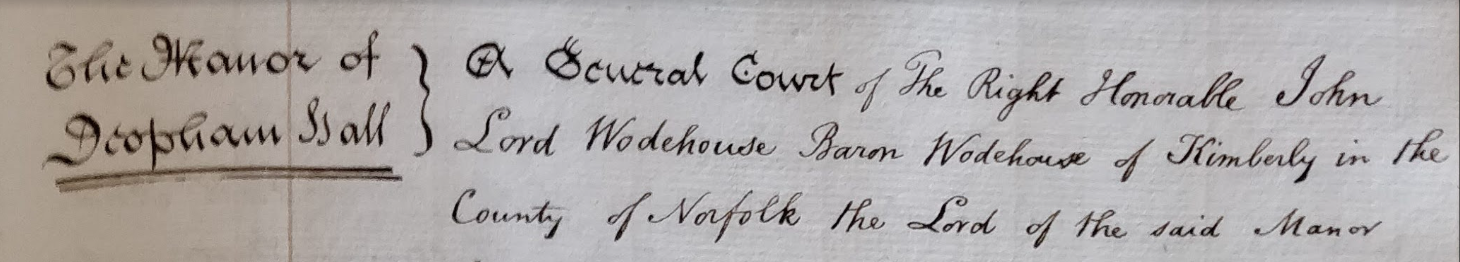 The Manor of } A General Court of The Right Honorable John
Deopham Hall } Lord Wodehouse Baron Wodehouse of Kimberly in the
County of Norfolk the Lord of the said Manor